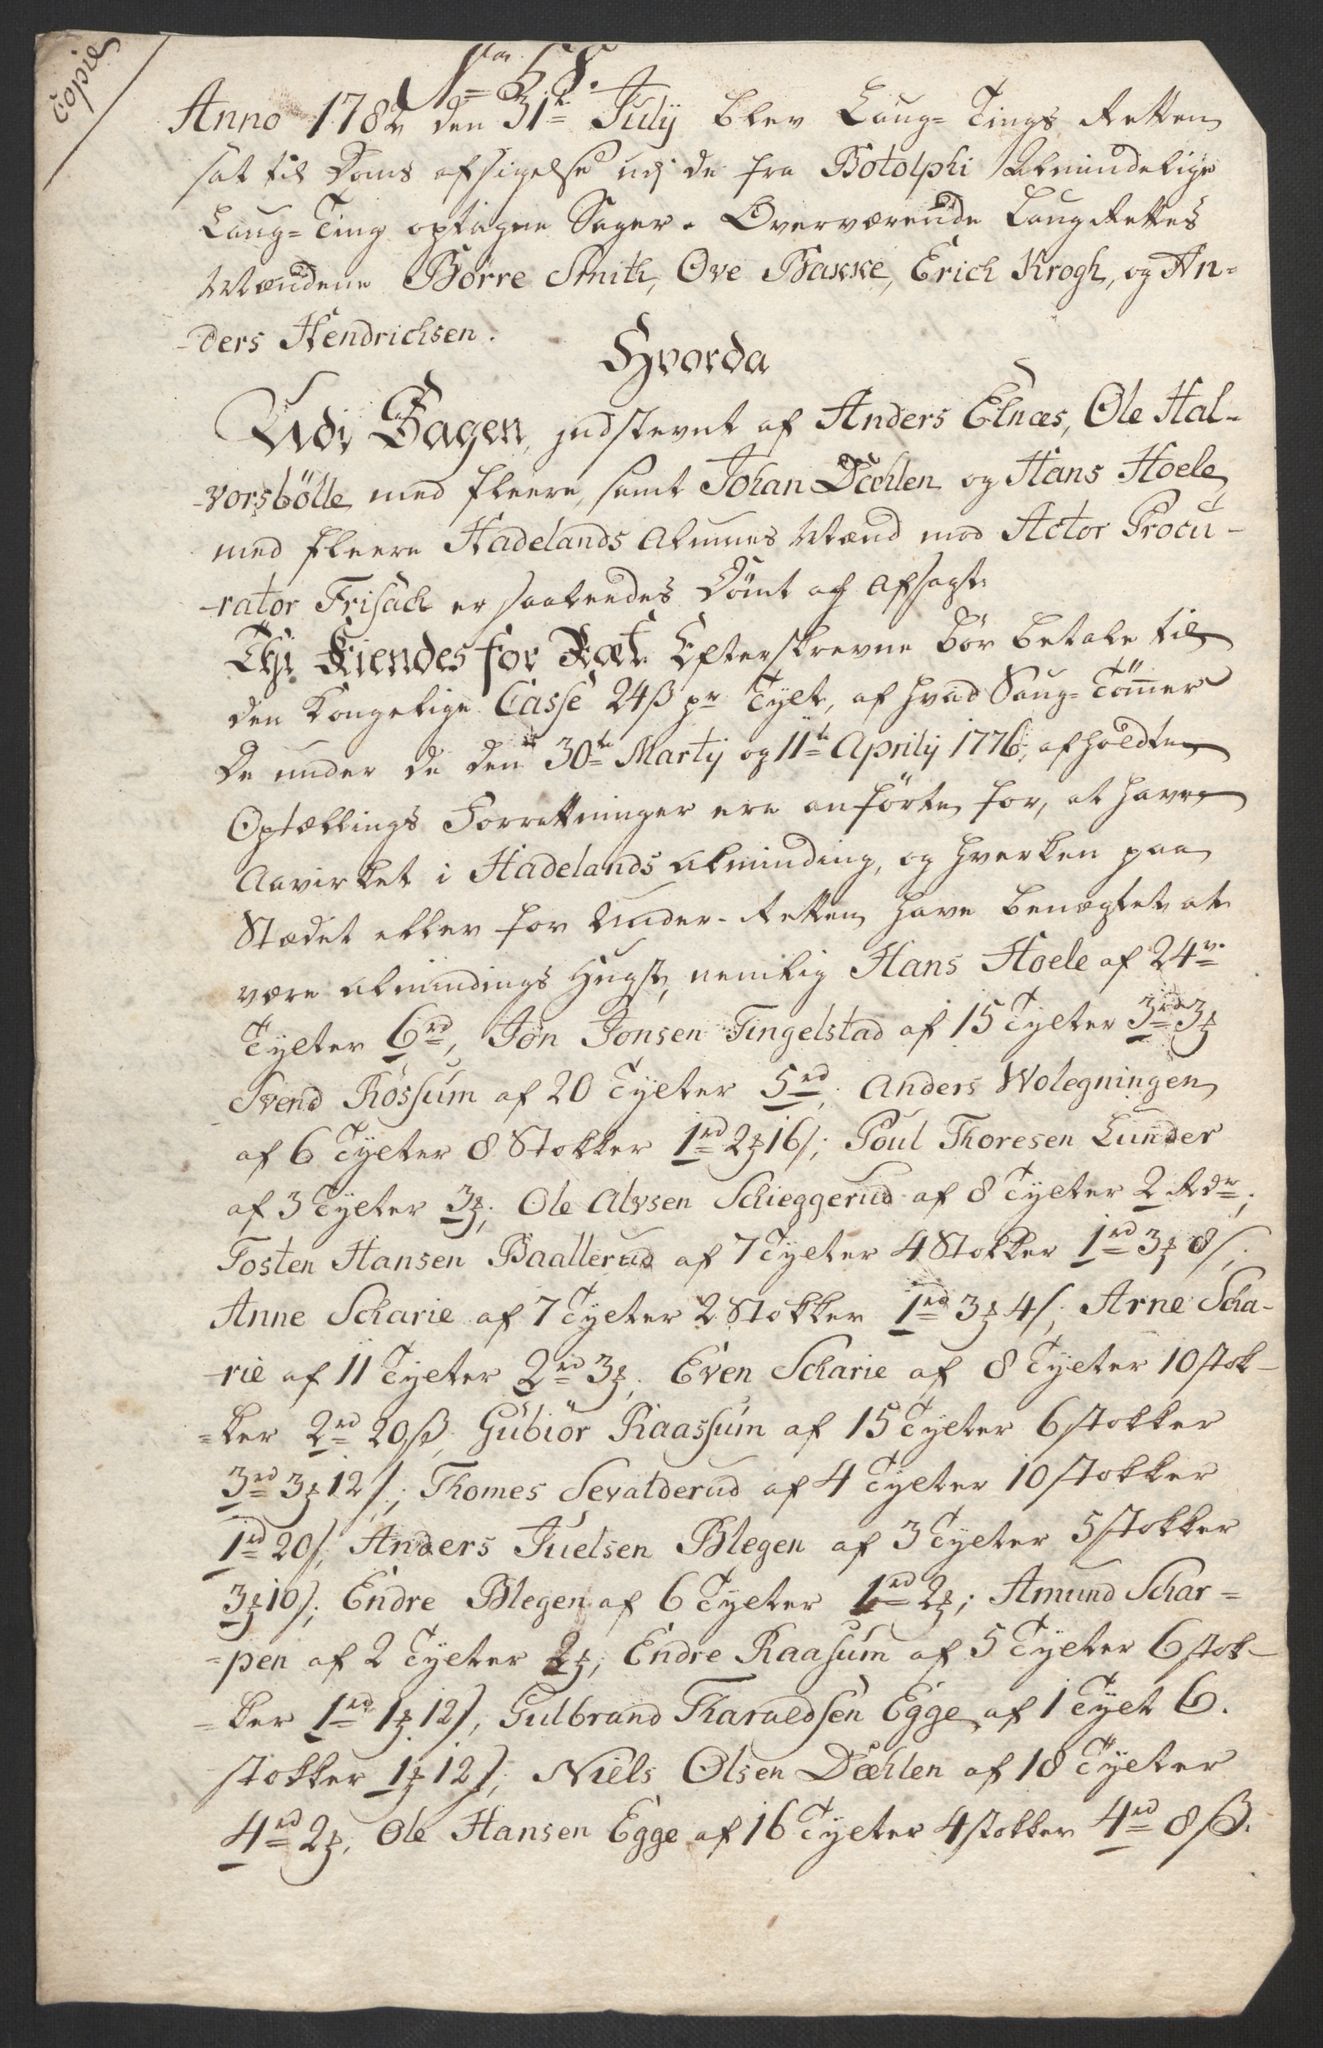 Copie
No 58.
Anno 1782 den 31te Julij blev Laug-Tings Retten
sat til Doms afsigelse udj de fra Botolphi Almindelige
Laug-Ting optagne Sager. Overværende LaugRettes
Mændene Börre Smith, Ove Bakke, Erich Krogh, og An-
-ders Hendrichsen.
Hvorda
Udi Sagen, indstevnt af Anders Elnæs, Ole Hal-
-vorsbölle med fleere, samt Johan Dæhlen og Hans Hoele
med fleere Hadelands Almues Mænd mod Actor Procu-
-rator Frisach er saaledes Dömt og afsagt.
Thi Kiendes for Ræt. Efterskrevne bör betale til
den Kongelige Casse 24ß pr Tylt, af hvad Saug-Tömmer
de under de den 30te Martij og 11te Aprily 1776, afholdte
Optællings Forretninger ere anförte for, at have
Aavirket i Hadelands Alminding, og hverken paa
Stædet eller for Under-Retten have benægtet at
være Almindings Hugst, nemlig Hans Hoele af 24re
Tylter 6rd, Jon Jonsen Tingelstad af 15 Tylter 3rd 3ʒ
Svend Rössum af 20 Tylter 5rd, Anders Wolegningen
af 6 Tylter 8 Stokker 1rd 2ʒ 16ß; Poul Thoresen Lunder
af 3 Tylter 3ʒ; Ole Alvsen Schieggerud af 8 Tylter 2 Rdr;
Tosten Hansen Baallerud af 7 Tylter 4 Stokker 1rd 3ʒ 8ß;
Anne Scharie af 7 Tylter 2 Stokker 1rd 3ʒ 4ß; Arne Scha-
-rie af 11 Tylter 2rd 3ʒ; Even Scharie af 8 Tylter 10 stok-
-ker 2rd 20ß, Gubiör Raassum af 15 Tylter 6 stokker
3rd 3ʒ 12ß; Thomes Sevalderud af 4 Tylter 10 stokker
1rd 20ß, Anders Juelsen Blegen af 3 Tylter 5 stokker
3ʒ 10ß; Endre Blegen af 6 Tylter 1rd 2ʒ; Amund Schar-
-pen af 2 Tylter 2ʒ; Endre Raasum af 5 Tylter 6 stok-
-ker 1rd 1ʒ 12ß, Gulbrand Tharaldsen Egge af 1 Tylt 6.
stokker 1ʒ 12ß; Niels Olsen Dæhlen af 18 Tylter
4rd 2ʒ, Ole Hansen Egge af 16 Tylter 4 stokker 4rd 8ß.